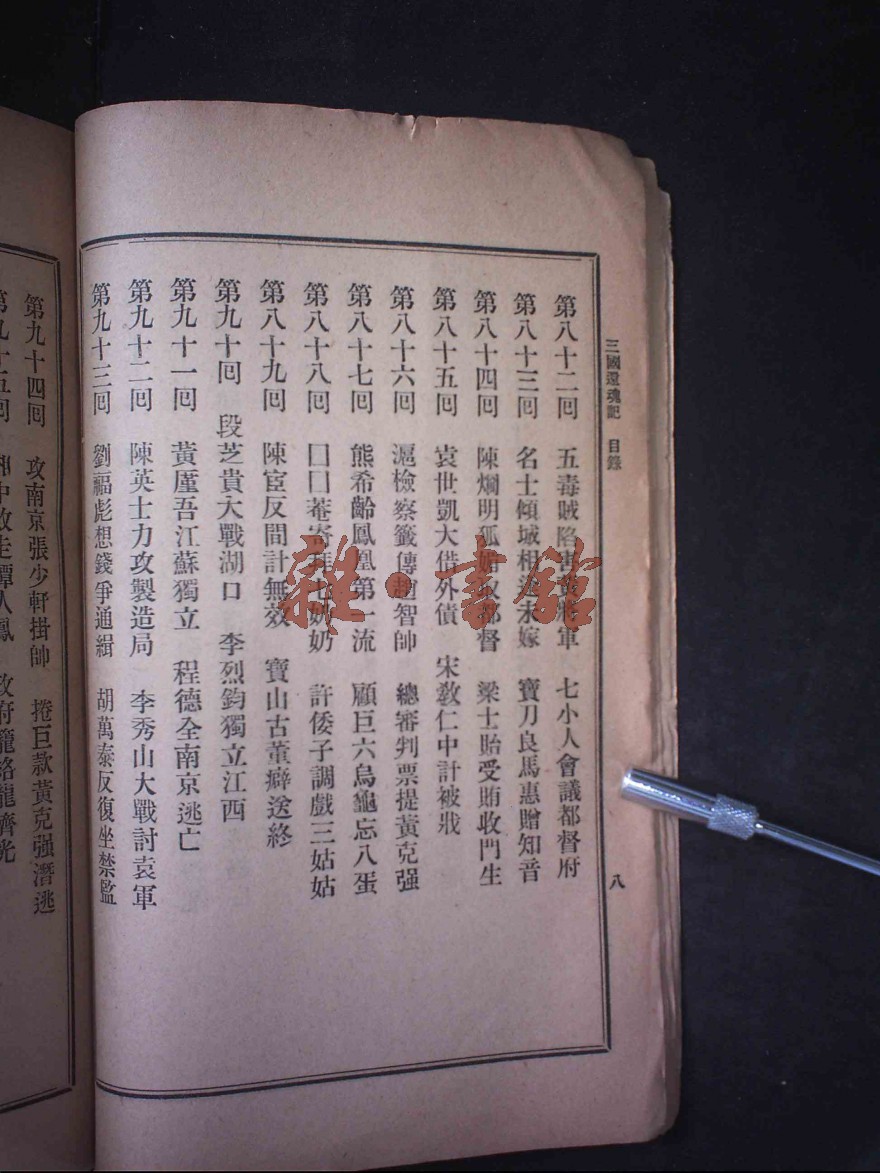 三國還魂記 目錄 八
第八十二囘 五毒賊陷害黃將軍 七小人會議都督府
第八十三囘 名士傾城相逢未嫁 寶刀良馬惠贈知音
第八十四囘 陳爛明狐媚都督 梁士貽受賄收門生
第八十五囘 袁世凱大借外債 宋敎仁中計被戕
第八十六囘 滬檢察籤傳趙智帥 總審判票提黃克强
第八十七囘 熊希齡鳳凰第一流 顧巨六烏龜忘八蛋
第八十八囘 口口菴寄拜七奶奶 許倭子調戲三姑姑
第八十九囘 陳宧反間計無效 寶山古董癖送終
第九十囘 段芝貴大戰湖口 李烈鈞獨立江西
第九十一囘 黃厪吾江蘇獨立 程德全南京逃亡
第九十二囘 陳英士力攻製造局 李秀山大戰討袁軍
第九十三囘 劉福彪想錢爭通緝 胡萬泰反復坐禁監
第九十四囘 攻南京張少軒掛帥 捲巨款黃克强潛逃
第九十五囘 走譚人鳳 政府籠絡龍濟光
雜·書館